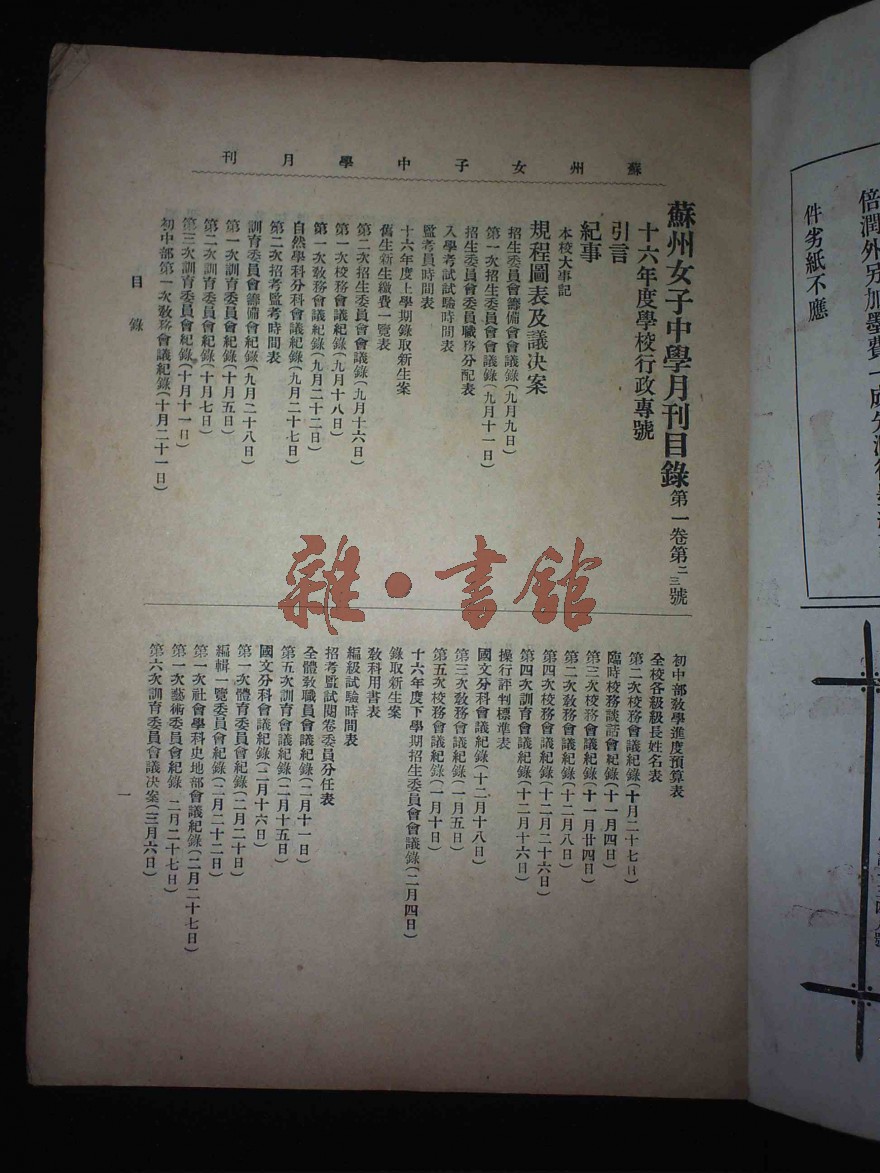 蘇州女子中學月刊
蘇州女子中學月刊目錄 第一卷第二三號
十六年度學校行政專號
引言
紀事
本校大事記
規程圖表及議決案
招生委員會籌備會會議錄(九月九日)
第一次招生委員會會議錄(九月十一日)
招生委員會委員職務分配表
入學考試試驗時間表
監考員時間表
十六年度上學期錄取新生案
舊生新生繳費一覽表
第二次招生委員會會議錄(九月十六日)
第一次校務會議紀錄(九月十八日)
第一次教務會議紀錄(九月二十二日)
自然學科分科會議紀錄(九月二十七日)
第二次招考監考時間表
訓育委員會籌備會紀錄(九月二十八日)
第一次訓育委員會紀錄(十月五日)
第二次訓育委員會紀錄(十月七日)
第三次訓育委員會紀錄(十月十一日)
初中部第一次教務會議紀錄(十月二十一日)
初中部教學進度預算表
全校各級級長姓名表
第二次校務會議紀錄(十月二十七日)
臨時校務談話會紀錄(十一月四日)
第三次校務會議紀錄(十一月廿四日)
第二次教務會議紀錄(十二月八日)
第四次校務會議紀錄(十二月二十六日)
第四次訓育會議紀錄(十二月十六日)
操行評判標準表
國文分科會議紀錄(十二月十八日)
第三次教務會議紀錄(一月五日)
第五次校務會議紀錄(一月十日)
十六年度下學期招生委員會會議錄(二月四日)
錄取新生案
教科用書表
編級試驗時間表
招考監試閱卷委員分任表
全體教職員會議紀錄(二月十一日)
第五次訓育會議紀錄(二月十五日)
國文分科會議紀錄(二月十六日)
第一次體育委員會紀錄(二月二十日)
編輯一覽委員會紀錄(二月二十二日)
第一次社會學科史地部會議紀錄(二月二十七日)
第一次藝術委員會紀錄 二月二十七日)
第六次訓育委員會議決案(三月六日)
目錄
一
雜·書館
倍潤外另加墨費一成先潤後
件劣紙不應